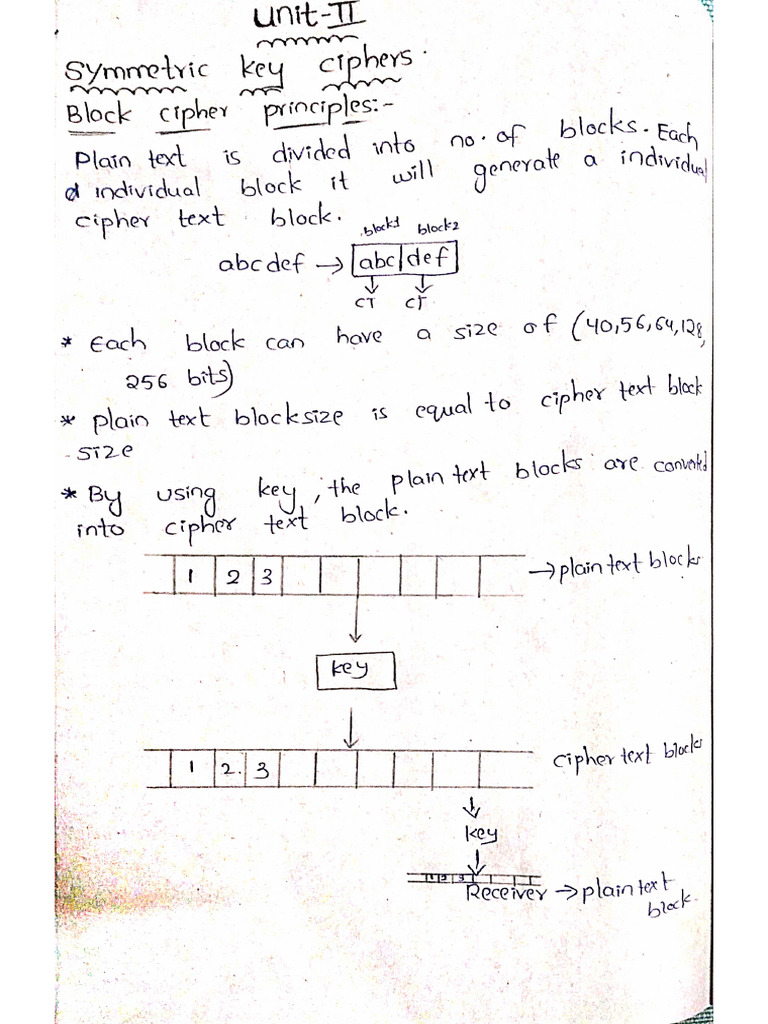 Unit-II
Symmetric key ciphers.
Block cipher principles:-
Plain text is divided into no. of blocks. Each
individual block it will generate a individual
cipher text block.
block1 block2
abcdef → abc def
CT CT
* Each block can have a size of (40,56,64,128,
256 bits)
* plain text blocksize is equal to cipher text block
size
* By using key, the plain text blocks are converted
into cipher text block.
1 2 3 → plain text blocks
key
1 2. 3 cipher text blocks
key
1 2 3
Receiver → plain text
block.